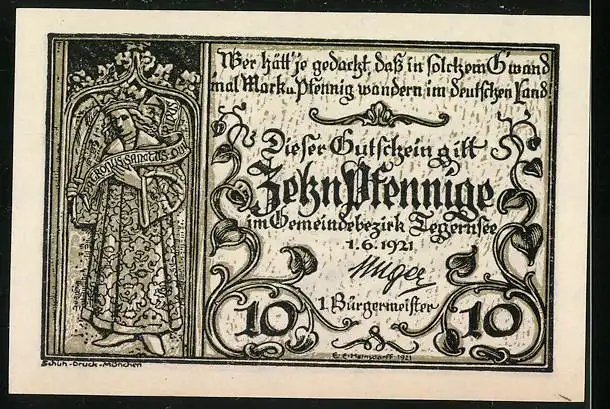 Wer hätt' je gedacht, daß in solchem G'wand
mal Mark u. Pfennig wandern im deutschen Land!
Dieser Gutschein gilt
Zehn Pfennige
im Gemeindebezirk Tegernsee
1.6.1921
1. Bürgermeister
10 10
PATRONUS SANCTUS
Schuh-Druck-München
1921